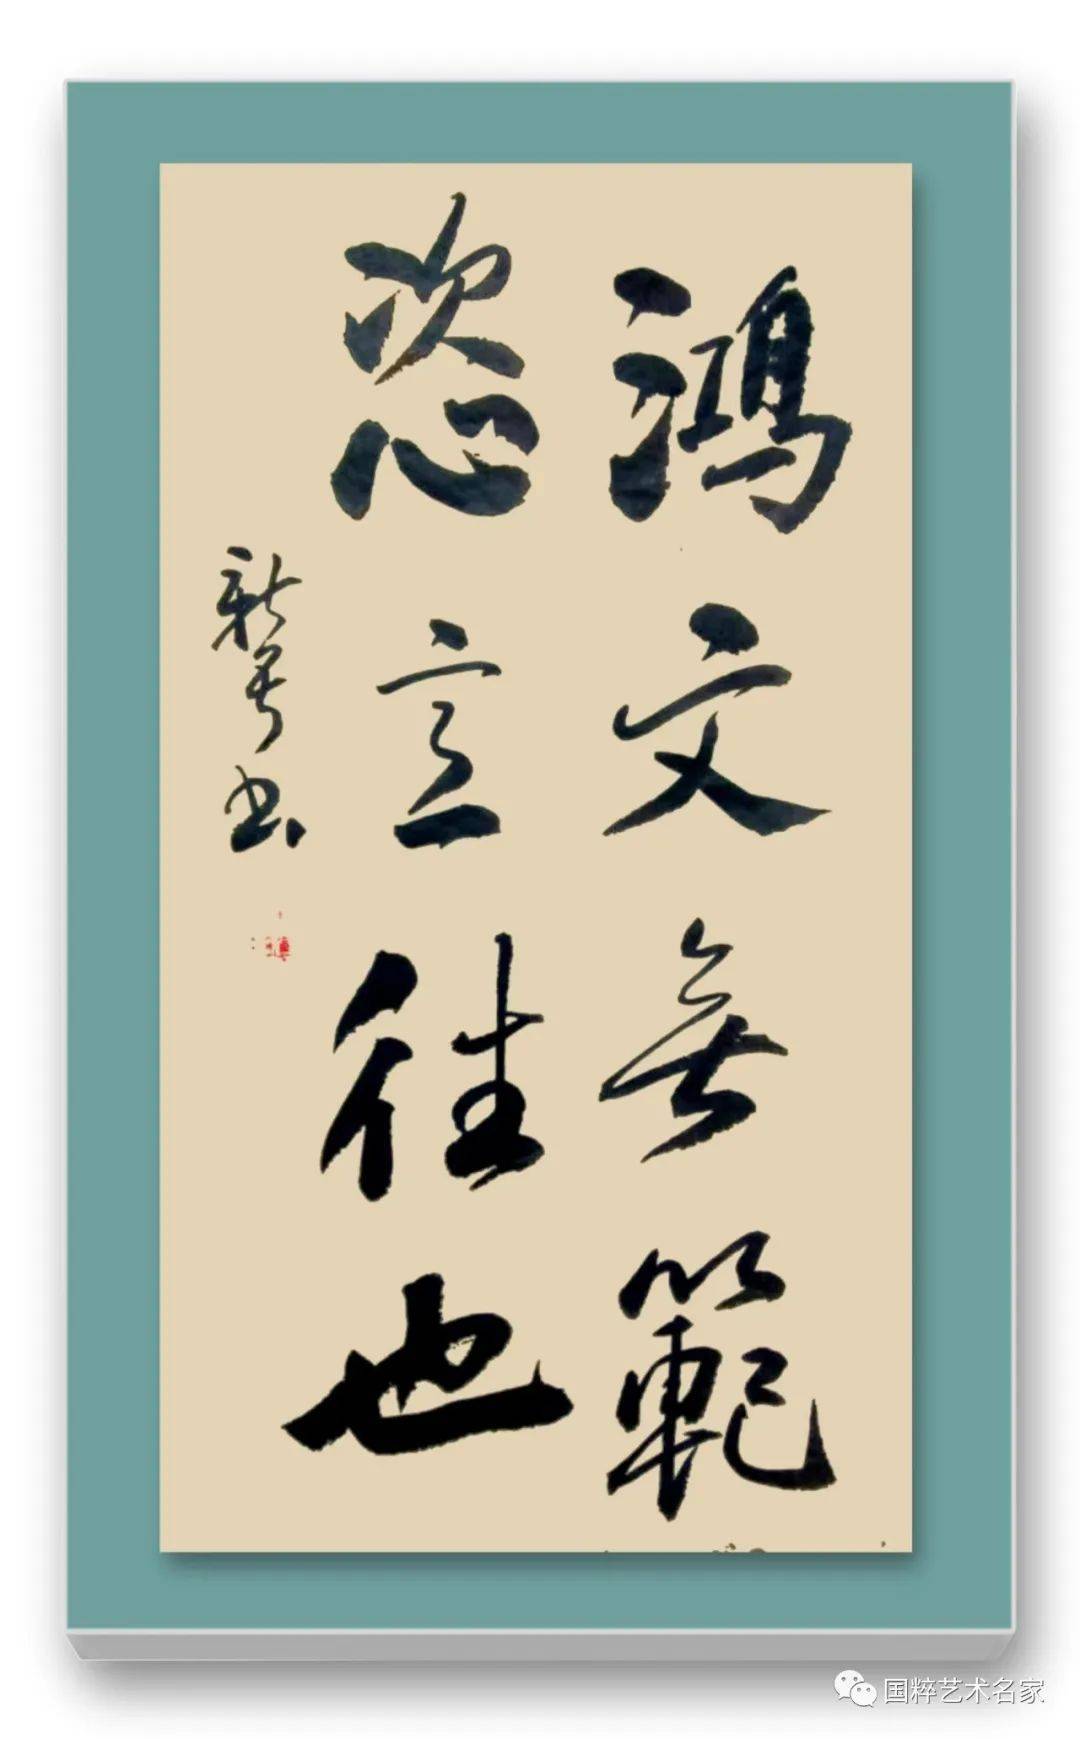 鴻文無範
恣意往也
新军书
国粹艺术名家